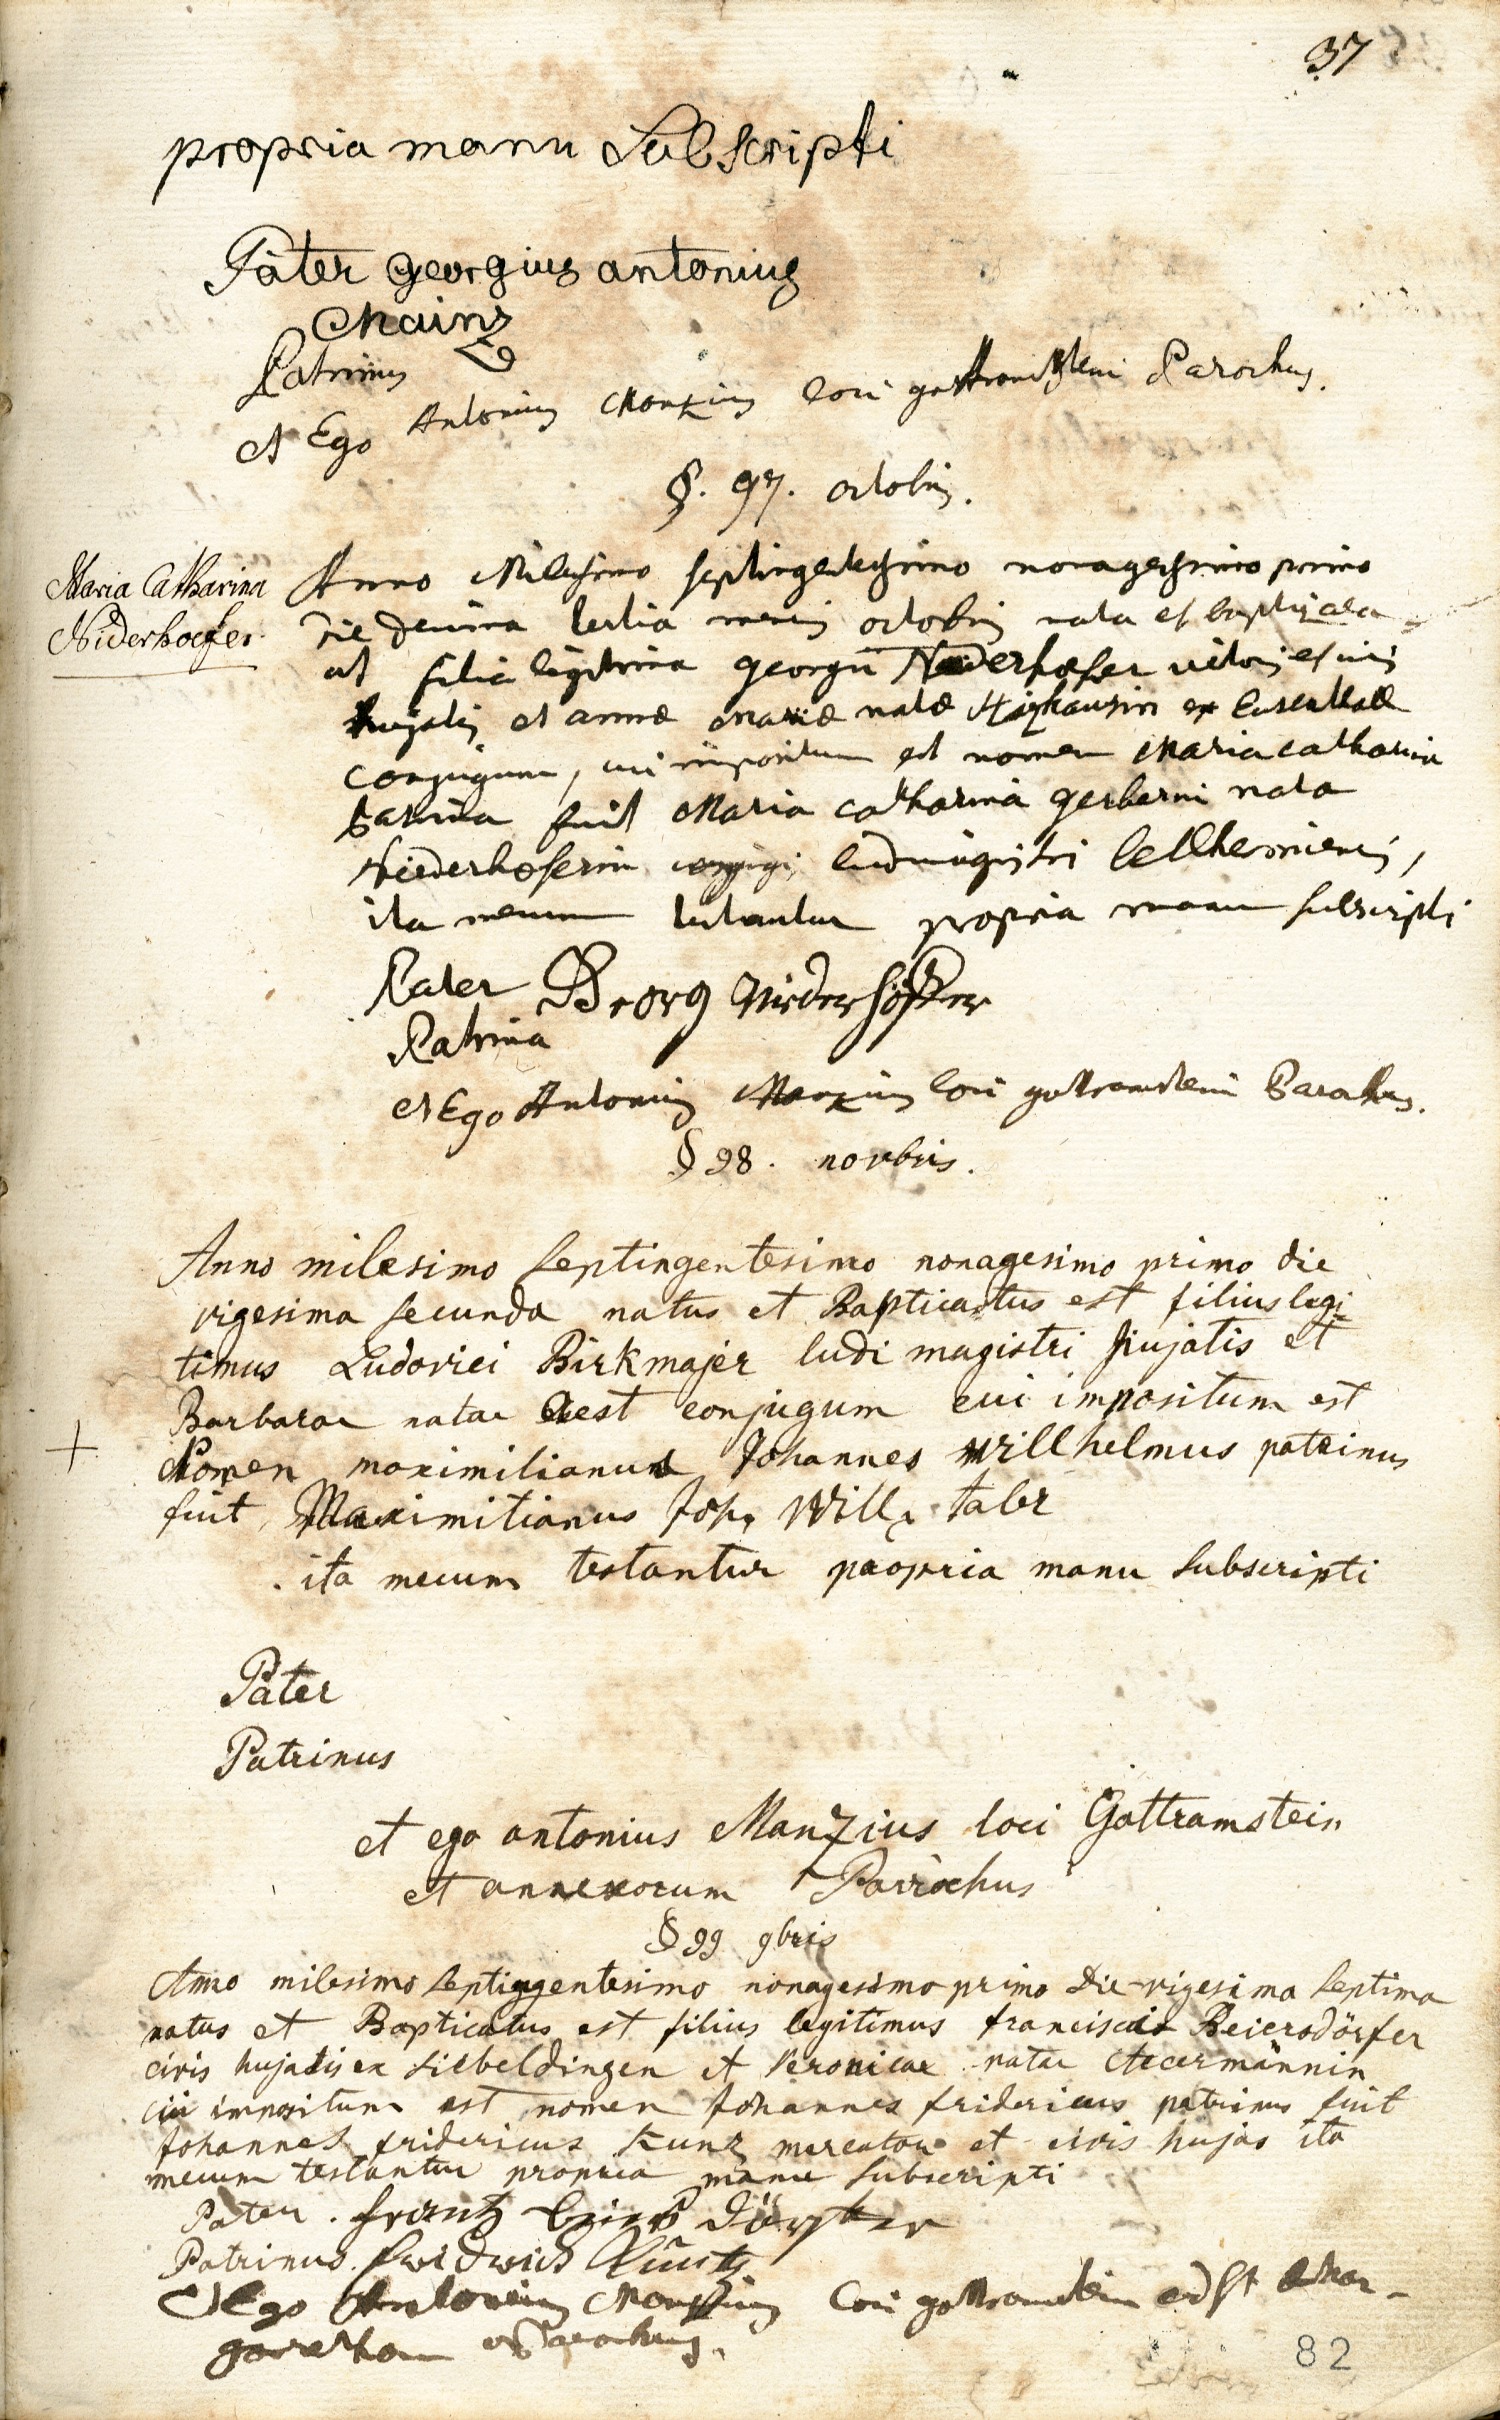 37
propria manu Subscripti
Pater georgius antonius
Mainz
Patrinus
et Ego Antonius Manzius loci gottramsteni Parochus.
§. 97. octobris.
Maria Catharina
Niderhoefer
Anno Millesimo septingentesimo nonagesimo primo
die decima tertia mensis octobris nata et baptizata
est filia legitima georgii Niederhofer civis
hujatis et annæ mariæ natæ ex
conjugum, cui impositum est nomen Maria catharina
Patrina fuit Maria catharina gerberin nata
Niederhoferin conjugis ludimagistri
ita mecum testantur propria manu subscripti
Pater Georg Niderhöffer
Patrina
et Ego Antonius Manzius loci gottramsteni Parochus.
§ 98. novbris.
Anno milesimo septingentesimo nonagesimo primo die
vigesima secunda natus et Bapticatus est filius legi
timus Ludovici Birkmajer ludi magistri hujatis et
Barbarae natae conjugum cui impositum est
Nomen maximilianus Johannes Willhelmus patrinus
fuit Maximilianus Joh. Will.
ita mecum testantur propria manu subscripti
Pater
Patrinus
et ego antonius Manzius loci Gottramstein
et annexorum Parochus
§ 99 9bris
Anno milesimo septingentesimo nonagesimo primo Die vigesima septima
natus et Bapticatus est filius legitimus Beiersdörfer
civis hujatis ex siebeldingen et Veronicae natae Accermännin
cui impositum est nomen Johannes fridericus patrinus fuit
Johannes fridericus Kunz mercator et civis hujas ita
mecum testantur propria manu subscripti
Pater. frantz
Patrinus. fridrich
et Ego Antonius Manzius loci gottramstein
Parochus.
82